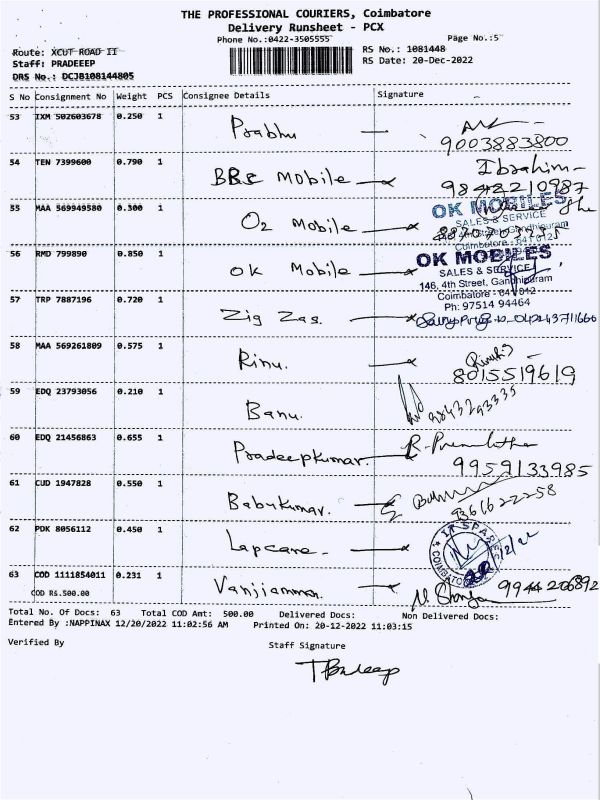 THE PROFESSIONAL COURIERS, Coimbatore
Delivery Runsheet - PCX
Phone No.:0422-3505555 Page No.:5
Route: XCUT ROAD II RS No.: 1081448
Staff: PRADEEEP RS Date: 20-Dec-2022
DRS No.: DCJB108144805
S No Consignment No Weight PCS Consignee Details Signature
53 IXM 502603678 0.250 1 Prabhu
9003883800
54 TEN 7399600 0.790 1 BBC Mobile Ibrahim
9842210987
55 MAA 569949580 0.300 1 O2 Mobile OK MOBILES
SALES & SERVICE
Coimbatore - 641 012
56 RMD 799890 0.850 1 OK Mobile OK MOBILES
SALES & SERVICE
146, 4th Street, Gandhipuram
Coimbatore - 641 012
Ph: 97514 94464
57 TRP 7887196 0.720 1 Zig Zag.
58 MAA 569261809 0.575 1 Rinu.
8015519619
59 EDQ 23793056 0.210 1 Banu. 9843293335
60 EDQ 21456863 0.655 1 Pradeepkumar. R. Premlatha
9959133985
61 CUD 1947828 0.550 1 Babukumar.
9361622258
62 PDK 8056112 0.450 1 Lapcare
63 COD 1111854011 0.231 1 Vanjiamman.
COD Rs.500.00
Total No. Of Docs: 63 Total COD Amt: 500.00 Delivered Docs: Non Delivered Docs:
Entered By :NAPPINAX 12/20/2022 11:02:56 AM Printed On: 20-12-2022 11:03:15
Verified By Staff Signature